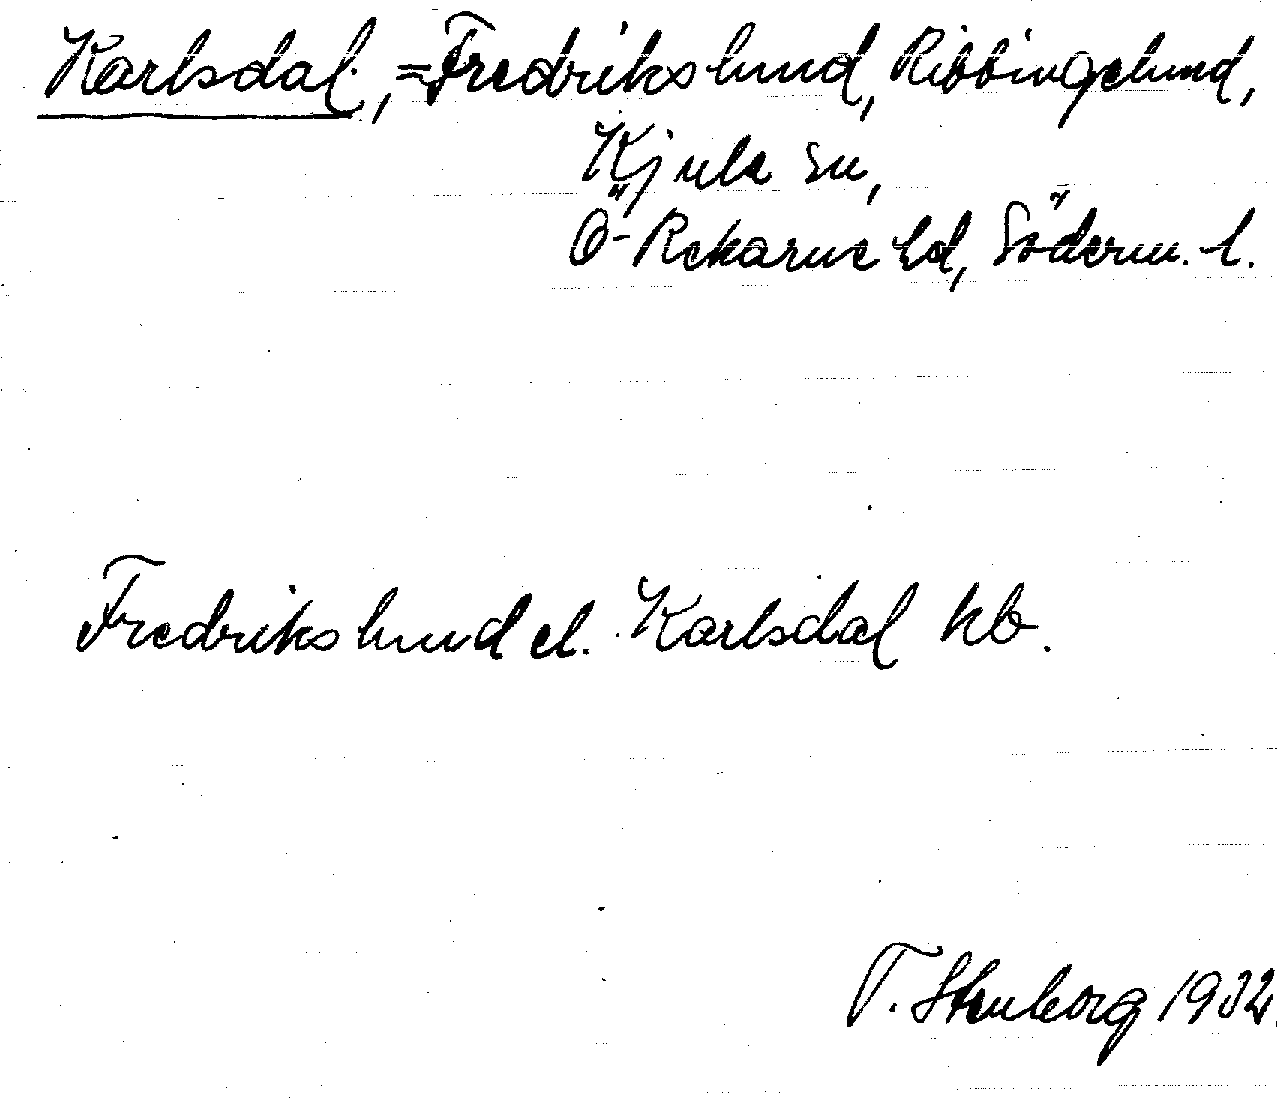 Karlsdal, = Fredrikslund, Ribbingelund,
Kjula sn,
Ö-Rekarne hd, Söderm. l.
Fredrikslund el. Karlsdal kb.
T. Stenborg 1932.